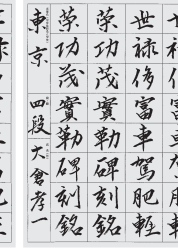 世禄侈富車駕肥軽
策功茂實勒碑刻銘
策功茂實勒碑刻銘
東京 四段 大倉孝一